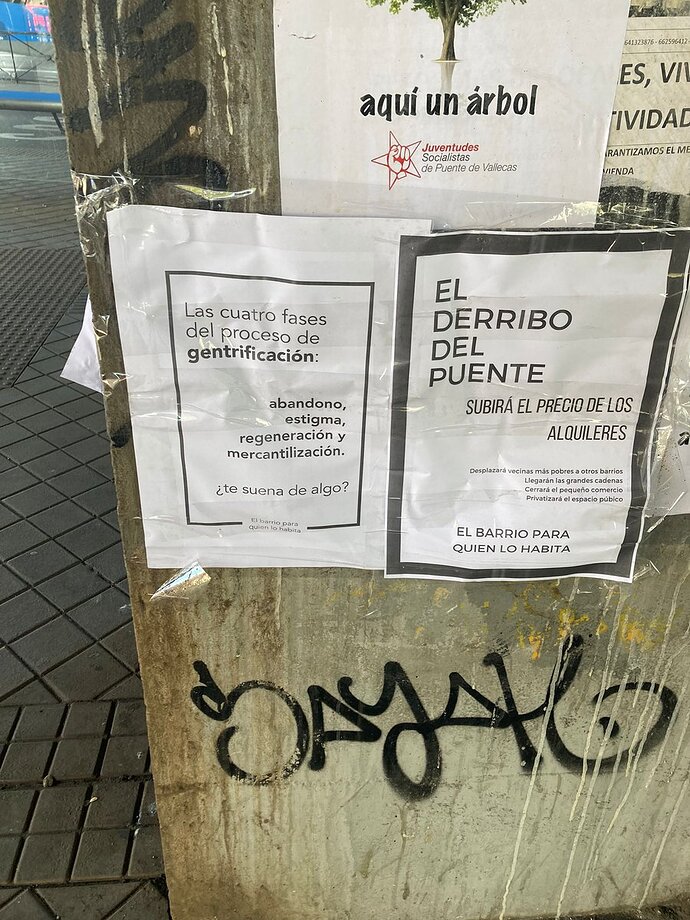 aquí un árbol
Juventudes
Socialistas
de Puente de Vallecas
641323876 - 662596412
ES, VIV
TIVIDAD
ARANTIZAMOS EL ME
VIENDA
Las cuatro fases
del proceso de
gentrificación:
abandono,
estigma,
regeneración y
mercantilización.
¿te suena de algo?
El barrio para
quien lo habita
EL
DERRIBO
DEL
PUENTE
SUBIRÁ EL PRECIO DE LOS
ALQUILERES
Desplazará vecinas más pobres a otros barrios
Llegarán las grandes cadenas
Cerrará el pequeño comercio
Privatizará el espacio púbico
EL BARRIO PARA
QUIEN LO HABITA